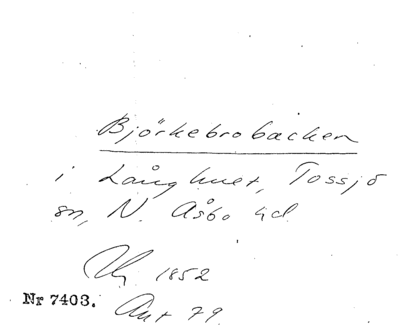 Björkebrobacken
i Långhult, Tossjö
sn, N. Åsbo hd
1852
Nr 7403. Ant 79